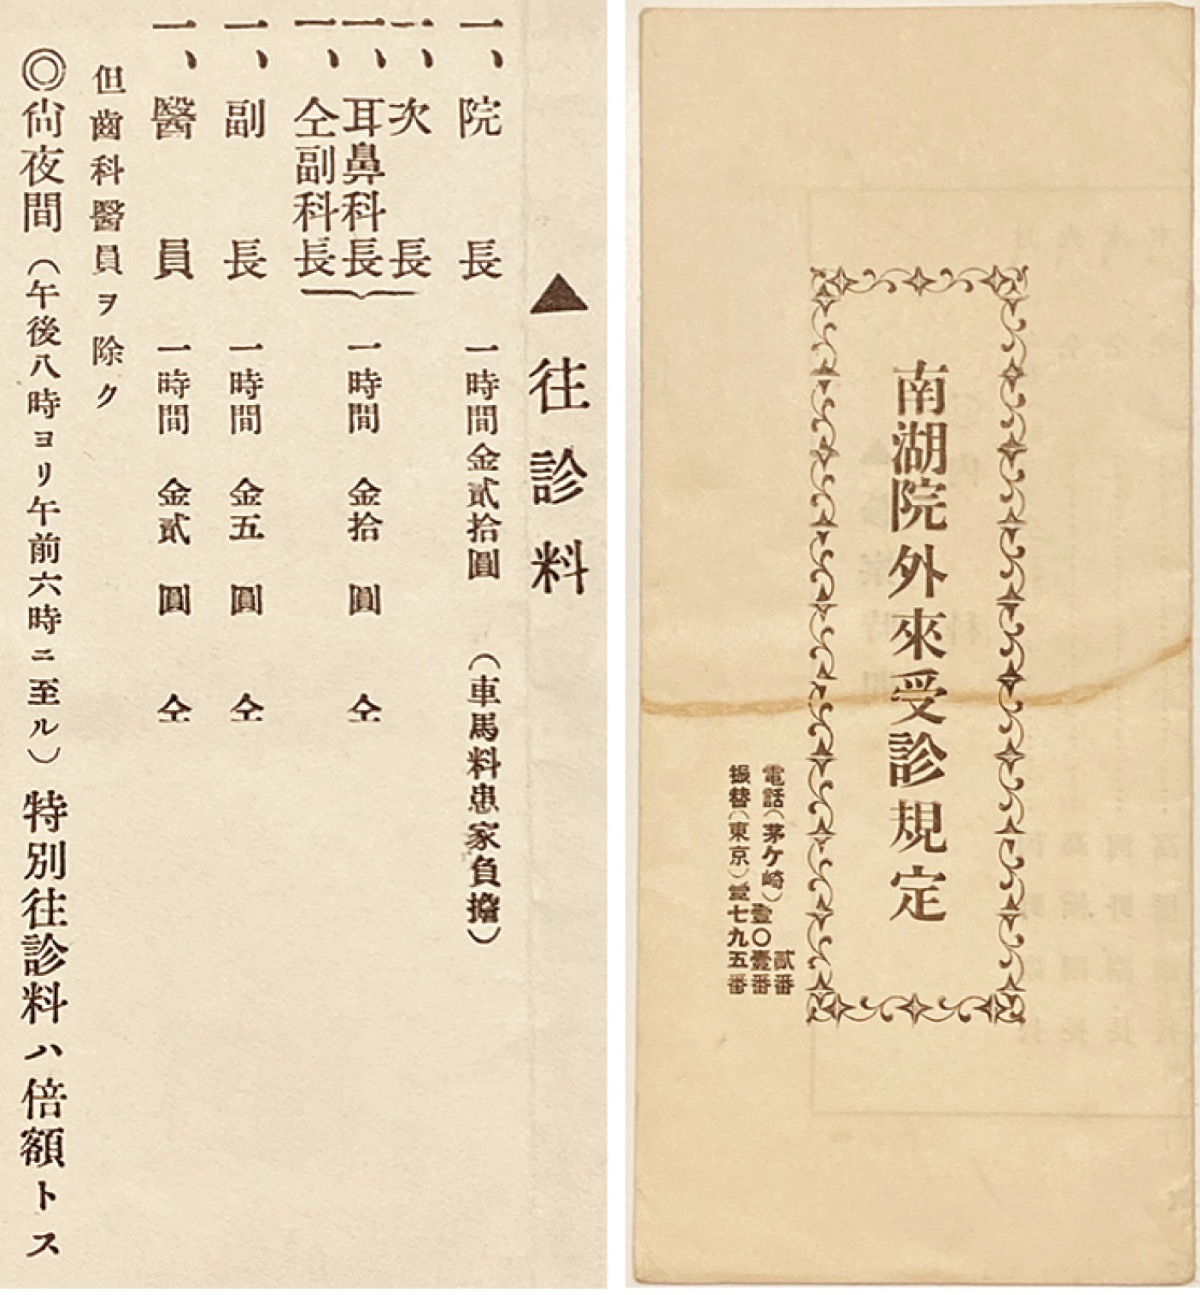 ▲往診料
一、院長 一時間金貳拾圓 (車馬料患家負擔)
一、次長
一、耳鼻科長 一時間 金拾圓 仝
一、仝副科長
一、副長 一時間 金五圓 仝
一、醫員 一時間 金貳圓 仝
但齒科醫員ヲ除ク
◎尙夜間(午後八時ヨリ午前六時ニ至ル)特別往診料ハ倍額トス
南湖院外來受診規定
電話(茅ケ崎)貳番
壹〇壹番
振替(東京)壹七九五番